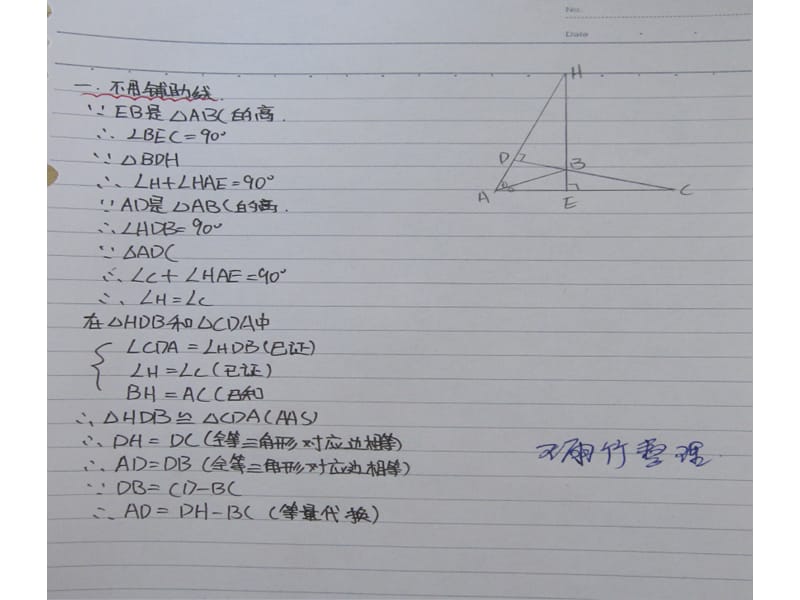 No.
Date
一. 不用铺助线.
∵ EB是△ABC的高.
∴ ∠BEC=90°
∵ △BDH
∴ ∠H+∠HAE=90°
∵ AD是△ABC的高.
∴ ∠HDB=90°
∵ △ADC
∴ ∠C+∠HAE=90°
∴ ∠H=∠C
在△HDB和△CDA中
∠CDA=∠HDB(已证)
∠H=∠C(已证)
BH=AC(已知
∴ △HDB≌△CDA(AAS)
∴ DH=DC(全等三角形对应边相等)
∴ AD=DB(全等三角形对应边相等)
∵ DB=CD-BC
∴ AD=DH-BC (等量代换)
H
D
B
A
E
C
雨竹整理